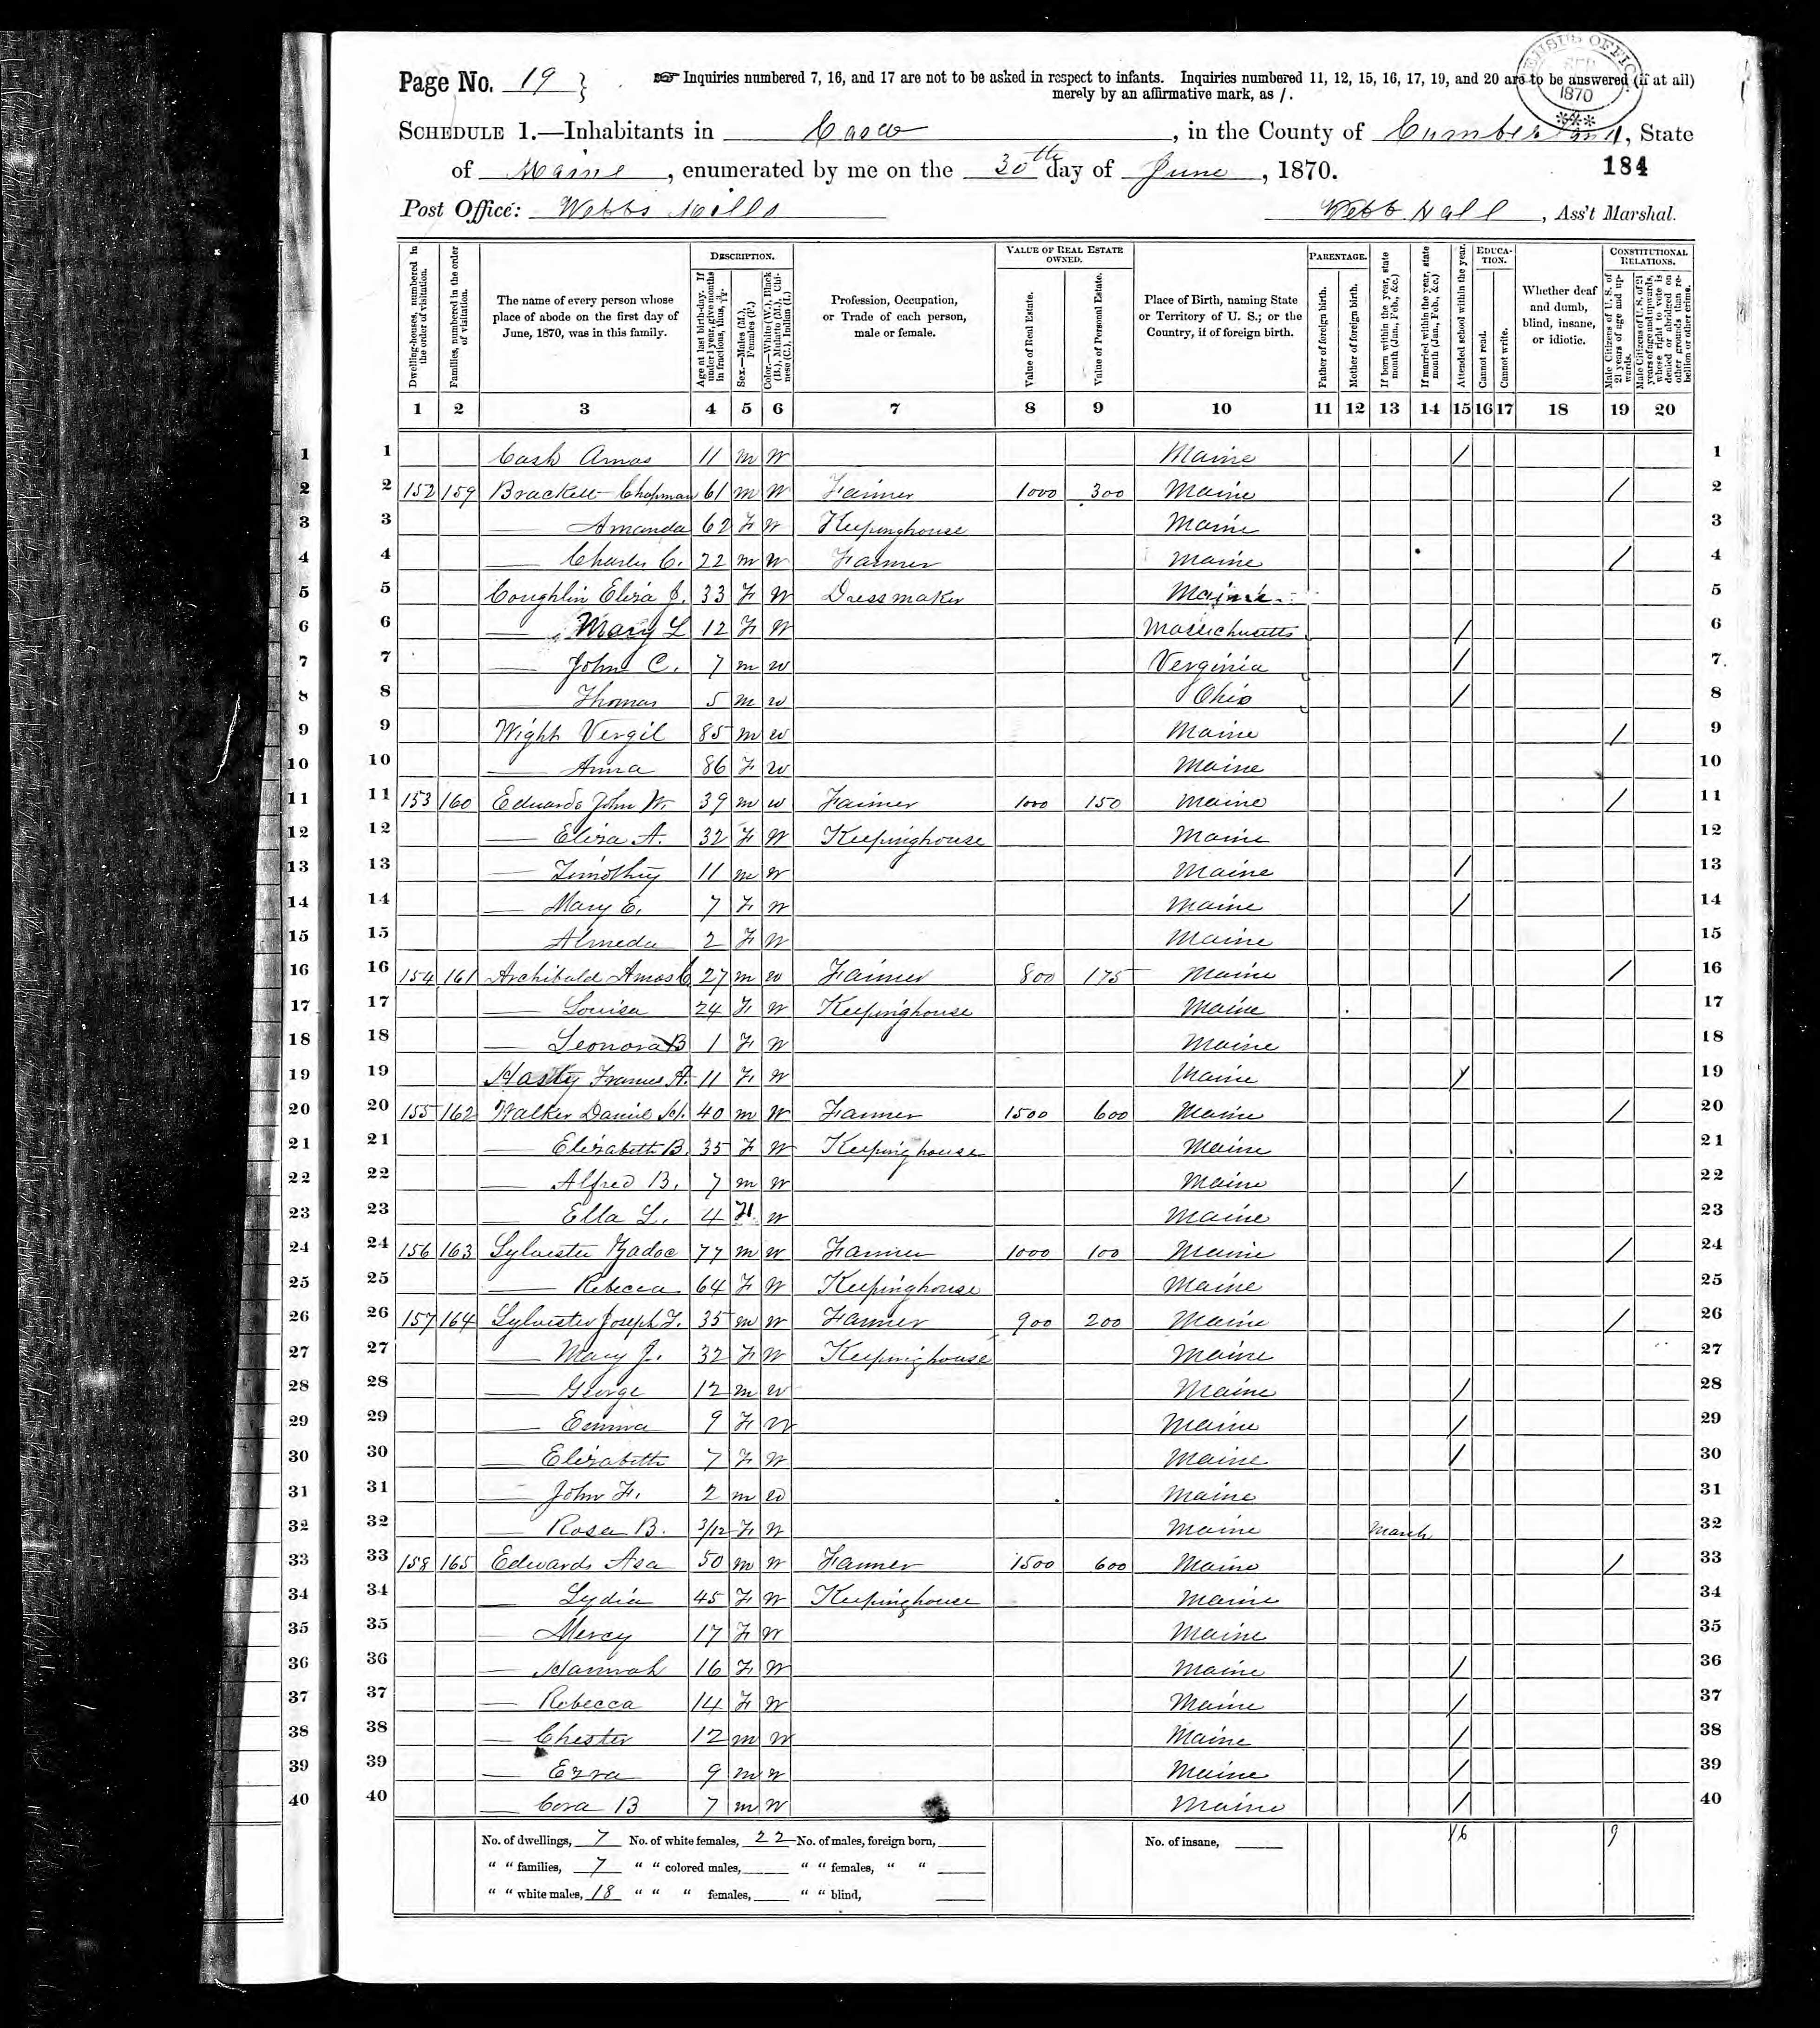 CENSUS OFFICE
1870
Page No. 19 } Inquiries numbered 7, 16, and 17 are not to be asked in respect to infants. Inquiries numbered 11, 12, 15, 16, 17, 19, and 20 are to be answered (if at all)
merely by an affirmative mark, as /.
SCHEDULE 1.—Inhabitants in Casco, in the County of Cumberland, State
of Maine, enumerated by me on the 30th day of June, 1870. 184
Post Office: Webbs Mills Webb Hall, Ass't Marshal.
Dwelling-houses, numbered in the order of visitation.
Families, numbered in the order of visitation.
The name of every person whose place of abode on the first day of June, 1870, was in this family.
DESCRIPTION.
Age at last birth-day. If under 1 year, give months in fractions, thus, 3/12.
Sex.—Males (M.), Females (F.)
Color.—White (W.), Black (B.), Mulatto (M.), Chinese (C.), Indian (I.)
Profession, Occupation, or Trade of each person, male or female.
VALUE OF REAL ESTATE OWNED.
Value of Real Estate.
Value of Personal Estate.
Place of Birth, naming State or Territory of U. S.; or the Country, if of foreign birth.
PARENTAGE.
Father of foreign birth.
Mother of foreign birth.
If born within the year, state month (Jan., Feb., &c.)
If married within the year, state month (Jan., Feb., &c.)
Attended school within the year.
EDUCATION.
Cannot read.
Cannot write.
Whether deaf and dumb, blind, insane, or idiotic.
CONSTITUTIONAL RELATIONS.
Male Citizens of U. S. of 21 years of age and upwards.
Male Citizens of U. S. of 21 years of age and upwards, whose right to vote is denied or abridged on other grounds than rebellion or other crime.
1 2 3 4 5 6 7 8 9 10 11 12 13 14 15 16 17 18 19 20
1 1 Cash Amos 11 m W Maine / 1
2 2 152 159 Brackett Chapman 61 m W Farmer 1000 300 Maine / 2
3 3 — Amanda 62 F W Keepinghouse Maine 3
4 4 — Charles C. 22 m W Farmer Maine / 4
5 5 Coughlin Eliza J. 33 F W Dressmaker Maine 5
6 6 — Mary L 12 F W Massichusetts / 6
7 7 — John C. 7 m W Verginia / 7
8 8 — Thomas 5 m W Ohio / 8
9 9 Wight Vergil 85 m W Maine / 9
10 10 — Anna 86 F W Maine 10
11 11 153 160 Edwards John W. 39 m W Farmer 1000 150 Maine / 11
12 12 — Eliza A. 32 F W Keepinghouse Maine 12
13 13 — Timothy 11 m W Maine / 13
14 14 — Mary E. 7 F W Maine / 14
15 15 — Almeda 2 F W Maine 15
16 16 154 161 Archibald Amos C 27 m W Farmer 800 175 Maine / 16
17 17 — Louisa 24 F W Keepinghouse Maine 17
18 18 — Leonora B 1 F W Maine 18
19 19 Hasty Frances A. 11 F W Maine / 19
20 20 155 162 Walker Daniel H. 40 m W Farmer 1500 600 Maine / 20
21 21 — Elizabeth B. 35 F W Keepinghouse Maine 21
22 22 — Alfred B. 7 m W Maine / 22
23 23 — Ella L. 4 F W Maine 23
24 24 156 163 Sylvester Zadoc 77 m W Farmer 1000 100 Maine / 24
25 25 — Rebecca 64 F W Keepinghouse Maine 25
26 26 157 164 Sylvester Joseph F. 35 m W Farmer 900 200 Maine / 26
27 27 — Mary J. 32 F W Keepinghouse Maine 27
28 28 — George 12 m W Maine / 28
29 29 — Emma 9 F W Maine / 29
30 30 — Elizabeth 7 F W Maine / 30
31 31 — John F. 2 m W Maine 31
32 32 — Rosa B. 3/12 F W Maine March 32
33 33 158 165 Edwards Asa 50 m W Farmer 1500 600 Maine / 33
34 34 — Lydia 45 F W Keepinghouse Maine 34
35 35 — Mercy 17 F W Maine 35
36 36 — Hannah 16 F W Maine / 36
37 37 — Rebecca 14 F W Maine / 37
38 38 — Chester 12 m W Maine / 38
39 39 — Ezra 9 m W Maine / 39
40 40 — Cora B 7 m W Maine / 40
No. of dwellings, 7 No. of white females, 22 No. of males, foreign born, No. of insane, 16 9
" " families, 7 " " colored males, " " females, " "
" " white males, 18 " " " females, " " blind,